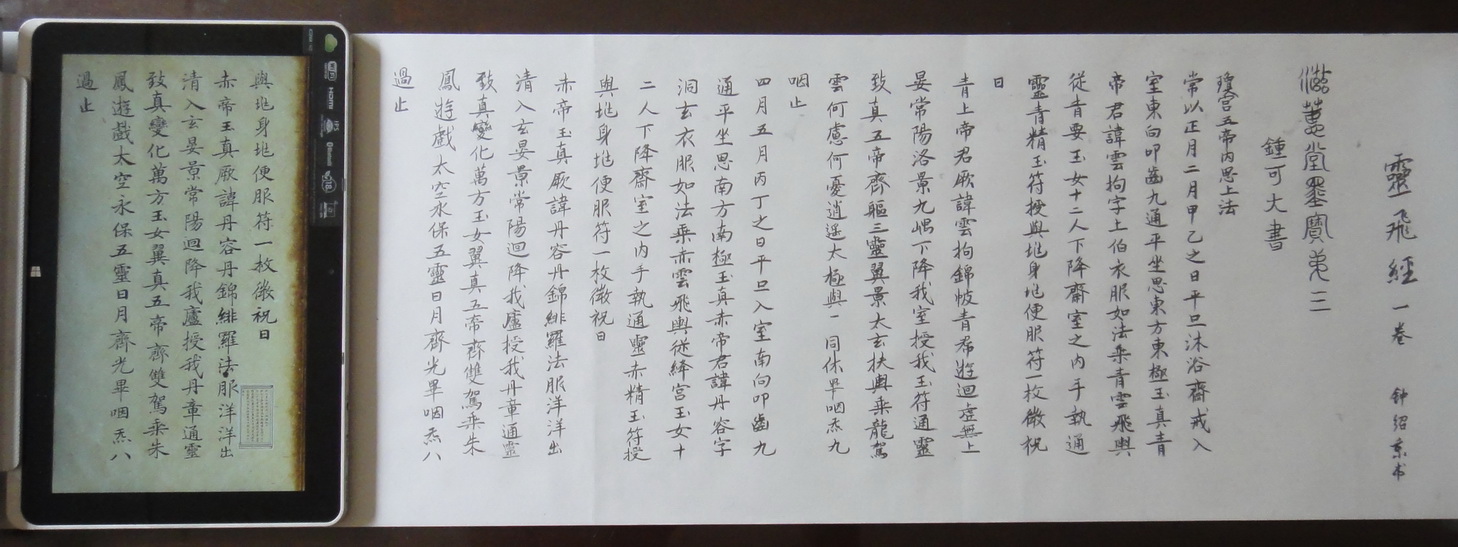 靈飛經一卷 钟绍京书
滋蕙堂墨寶弟三
鍾可大書
瓊宮五帝内思上法
常以正月二月甲乙之日平旦沐浴齋戒入
室東向叩齒九通平坐思東方東極玉真青
帝君諱雲拘字上伯衣服如法乘青雲飛輿
從青要玉女十二人下降齋室之内手執通
靈青精玉符授與地身地便服符一枚微祝
曰
青上帝君厥諱雲拘錦帔青帬遊迴虛無上
晏常陽洛景九嵎下降我室授我玉符通靈
致真五帝齊軀三靈翼景太玄扶輿乘龍駕
雲何慮何憂逍遥太極與一同休畢咽炁九
咽止
四月五月丙丁之日平旦入室南向叩齒九
通平坐思南方南極玉真赤帝君諱丹容字
洞玄衣服如法乘赤雲飛輿從絳宮玉女十
二人下降齋室之内手執通靈赤精玉符授
與地身地便服符一枚微祝曰
赤帝玉真厥諱丹容丹錦緋羅法服洋洋出
清入玄晏景常陽迴降我廬授我丹章通靈
致真變化萬方玉女翼真五帝齊雙駕乘朱
鳳遊戲太空永保五靈日月齊光畢咽炁八
過止
與地身地便服符一枚微祝曰
赤帝玉真厥諱丹容丹錦緋羅法服洋洋出
清入玄晏景常陽迴降我廬授我丹章通靈
致真變化萬方玉女翼真五帝齊雙駕乘朱
鳳遊戲太空永保五靈日月齊光畢咽炁八
過止